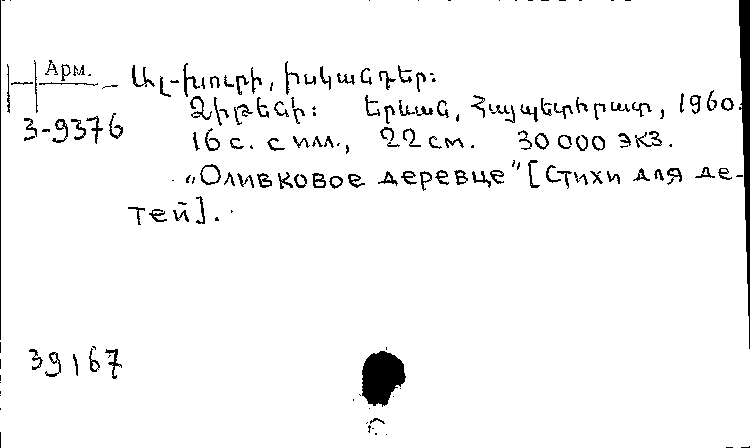 Арм.
Ալ-խուրի, իսկանդեր։
3-9376
Ձիթենի։ Երևան, Հայպետհրատ, 1960.
16 с. с илл., 22 см. 30 000 экз.
„Оливковое деревце" [Стихи для де-
тей].
39167